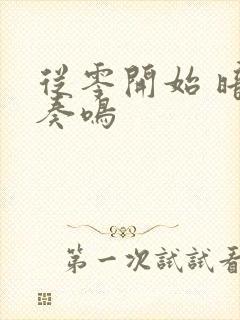 從零開始 暗
奏鳴
第一次試試看